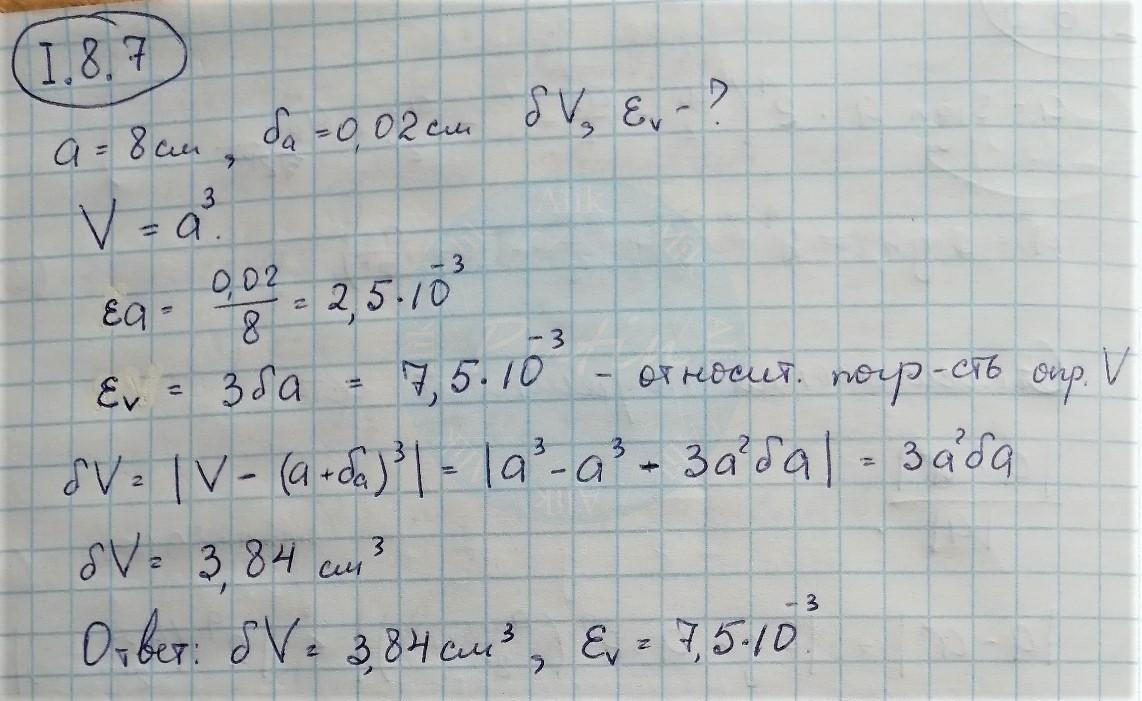 I.8.7
a = 8см, δa = 0,02см δV, εv - ?
V = a³.
εa = 0,02/8 = 2,5·10⁻³
εv = 3δa = 7,5·10⁻³ - относит. погр-сть опр. V
δV = |V - (a+δa)³| = |a³ - a³ - 3a²δa| = 3a²δa
δV = 3,84 см³
Ответ: δV = 3,84см³, εv = 7,5·10⁻³